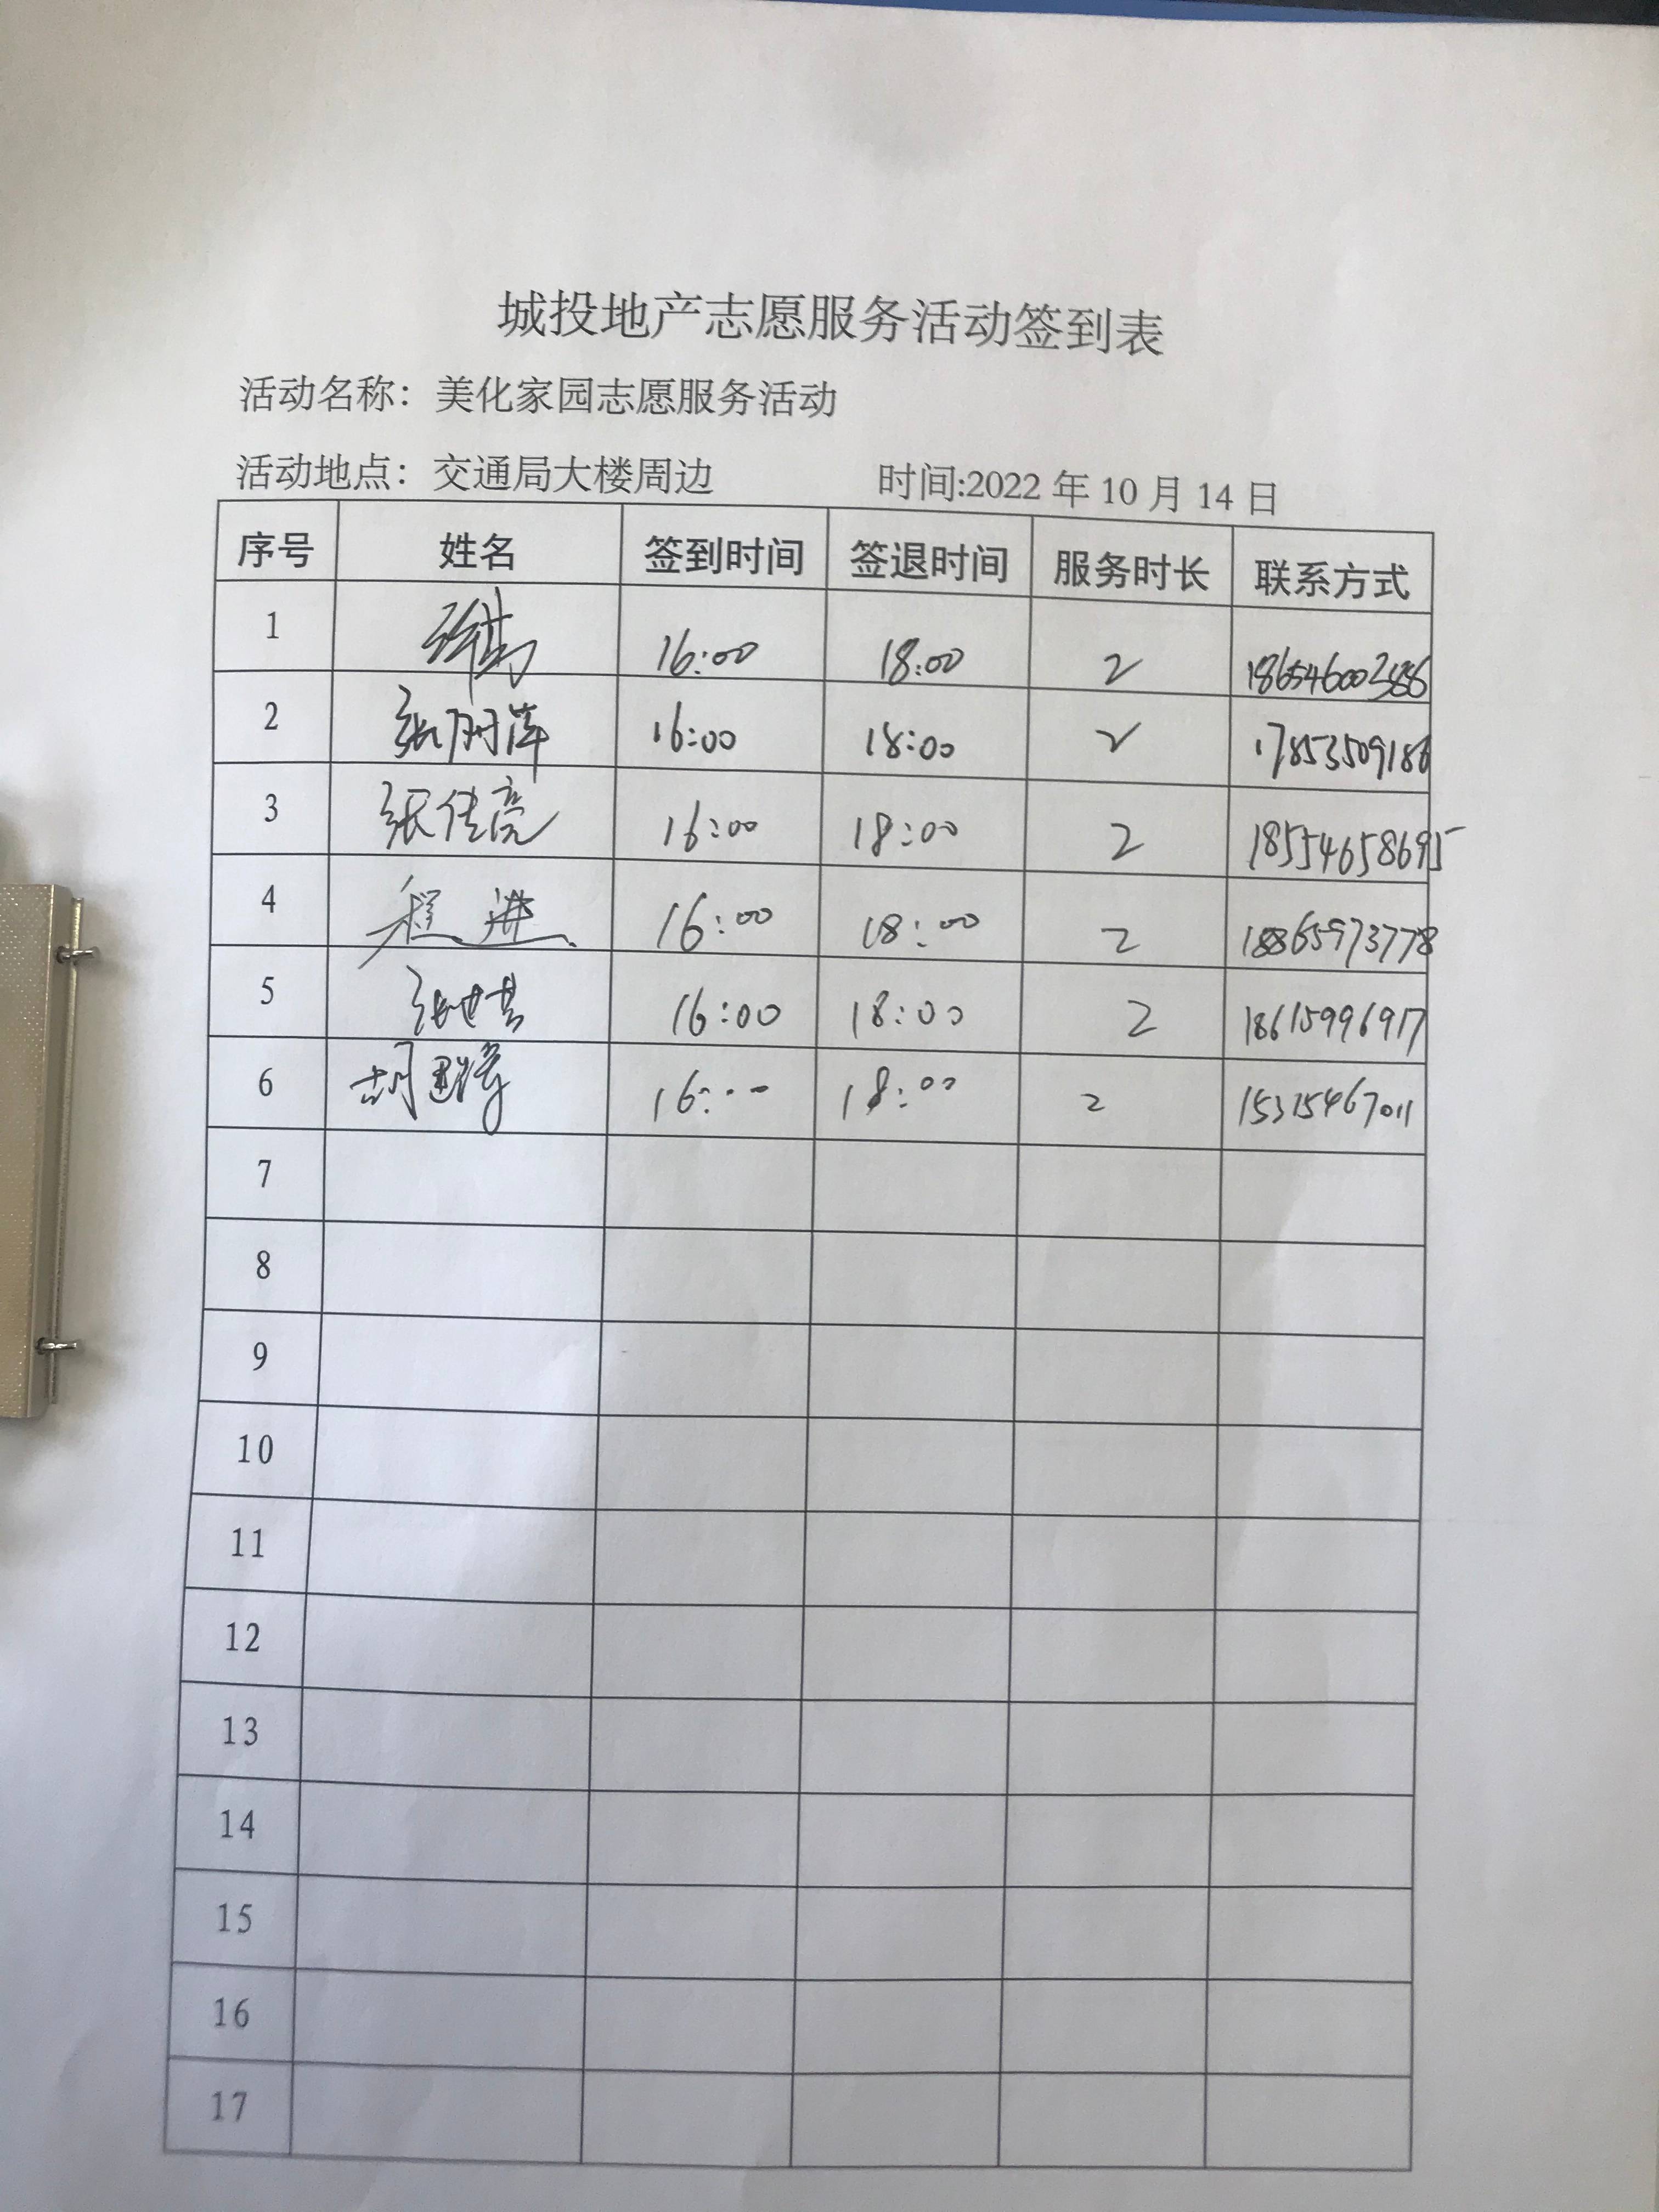 城投地产志愿服务活动签到表
活动名称：美化家园志愿服务活动
活动地点：交通局大楼周边 时间:2022 年 10 月 14 日
序号 姓名 签到时间 签退时间 服务时长 联系方式
1 16:00 18:00 2
2 张丽萍 16:00 18:00 2 17853509186
3 张佳亮 16:00 18:00 2 18554658695
4 程进 16:00 18:00 2 18865973778
5 16:00 18:00 2 18615996917
6 胡 16:00 18:00 2 15315467011
7
8
9
10
11
12
13
14
15
16
17